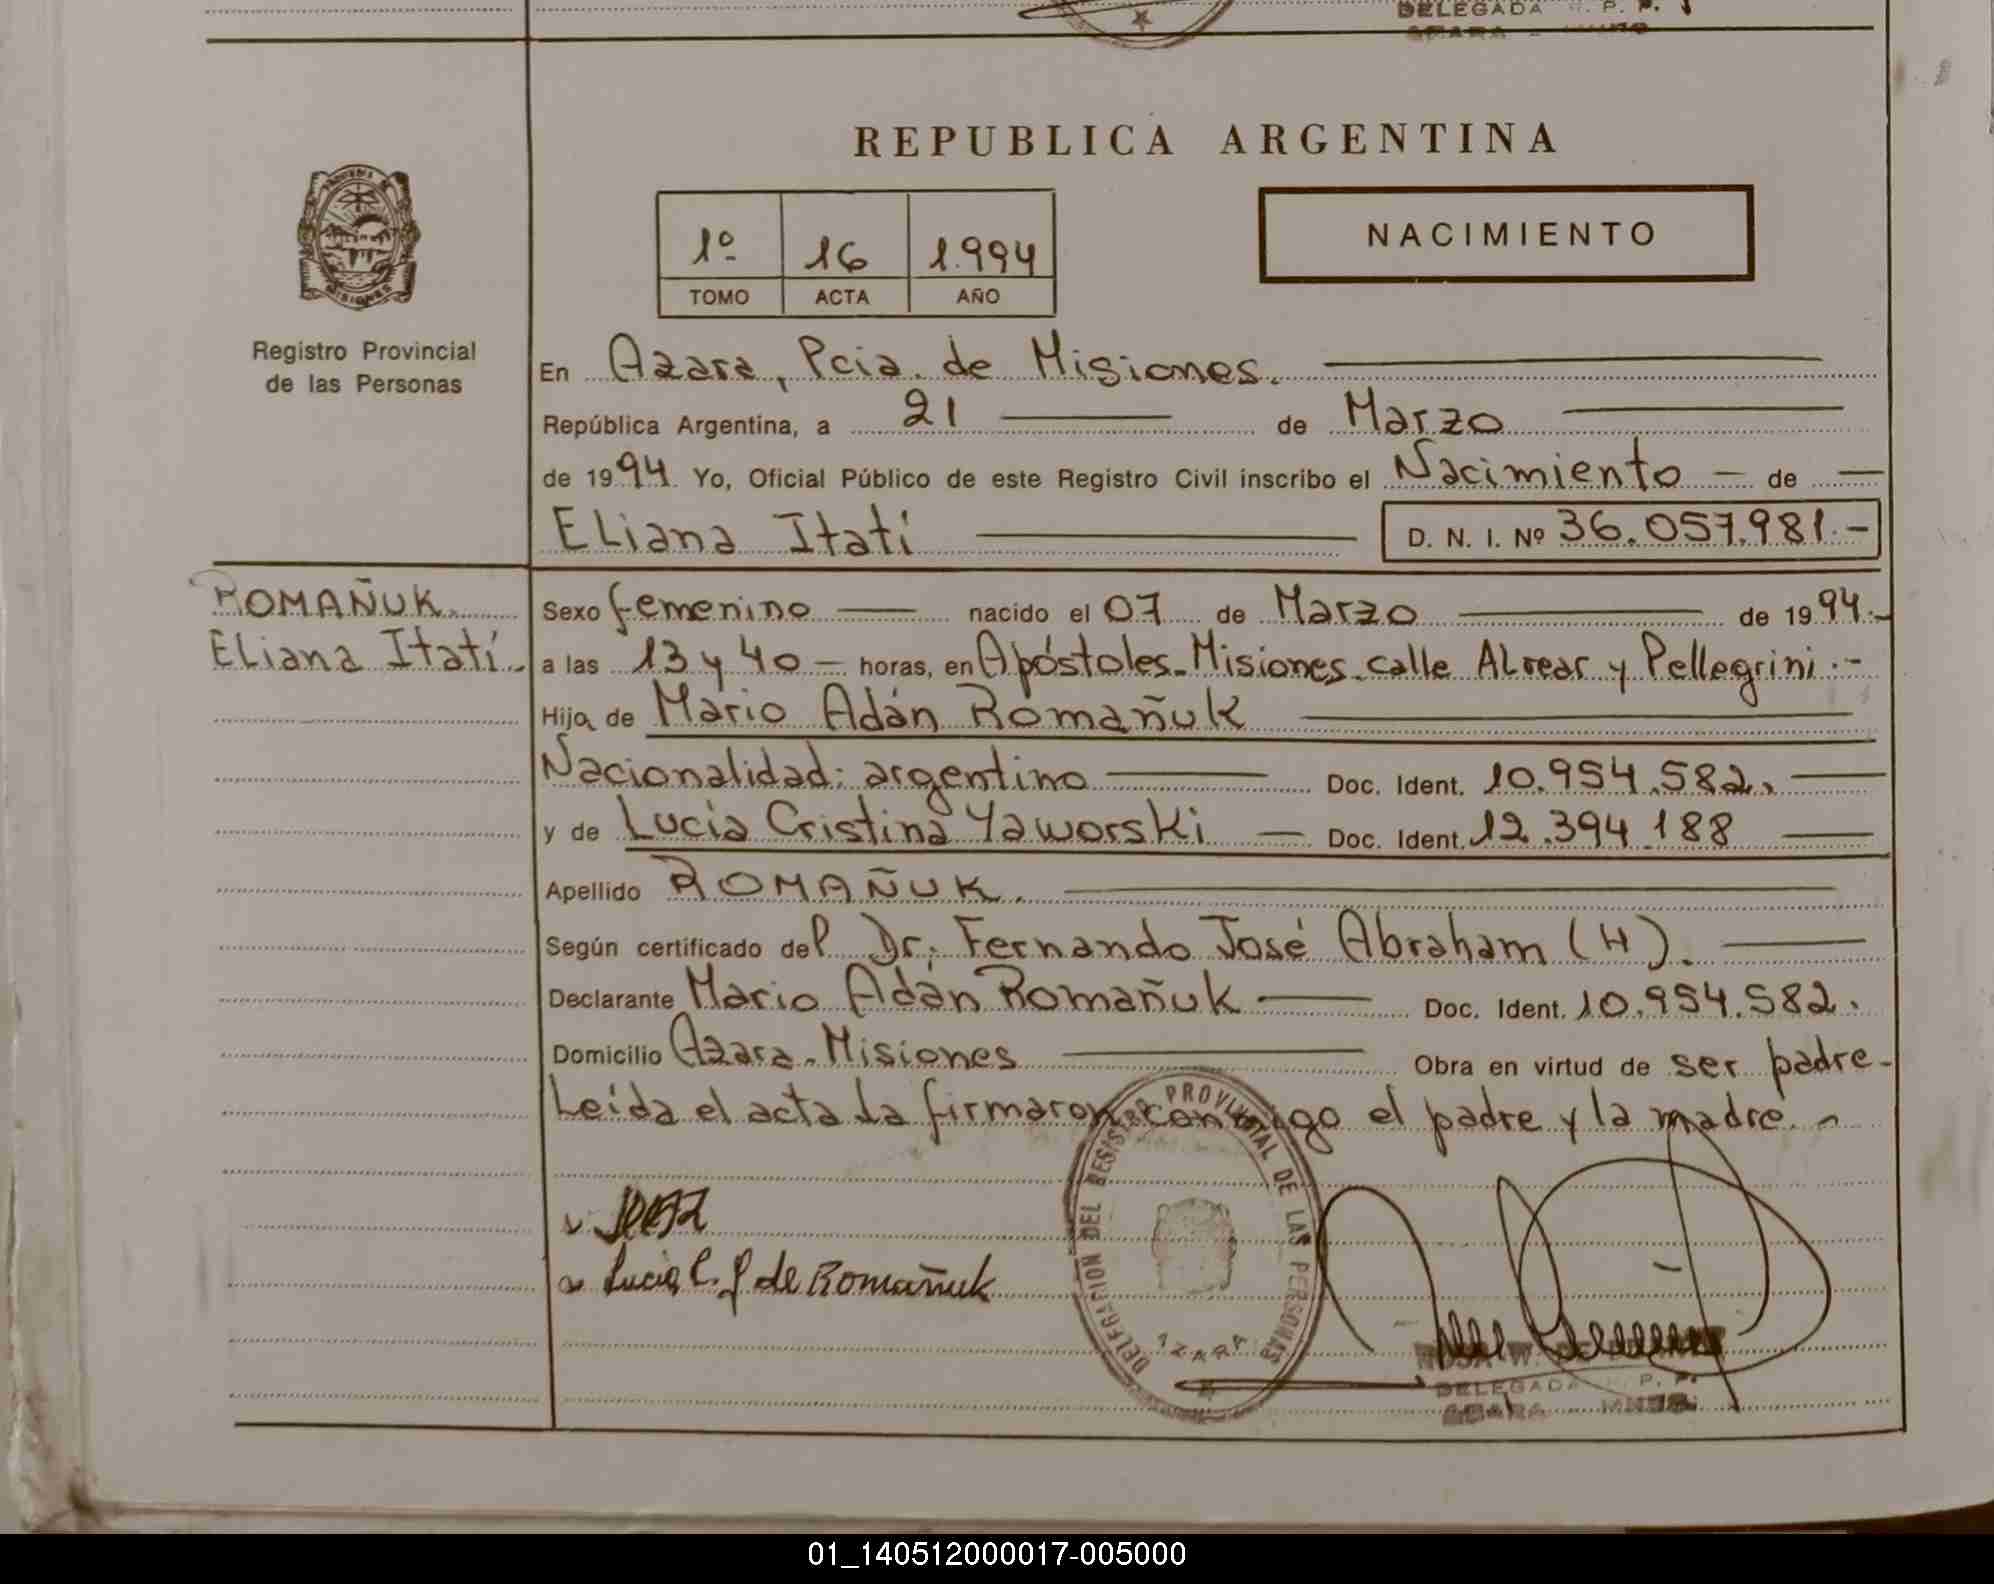 DELEGADA R. P. P.
REPUBLICA ARGENTINA
NACIMIENTO
1º 16 1.994
TOMO ACTA AÑO
MISIONES
Registro Provincial
de las Personas
En Azara, Pcia. de Misiones.
República Argentina, a 21 de Marzo
de 1994 Yo, Oficial Público de este Registro Civil inscribo el Nacimiento de
Eliana Itatí D. N. I. Nº 36.057.981.-
ROMAÑUK
Eliana Itatí.
Sexo femenino nacido el 07 de Marzo de 1994.-
a las 13 y 40 horas, en Apóstoles-Misiones-calle Alvear y Pellegrini.-
Hija de Mario Adán Romañuk
Nacionalidad: argentino Doc. Ident. 10.954.582.
y de Lucía Cristina Yaworski Doc. Ident. 12.394.188
Apellido ROMAÑUK.
Según certificado del Dr. Fernando José Abraham (H).
Declarante Mario Adán Romañuk Doc. Ident. 10.954.582.
Domicilio Azara-Misiones Obra en virtud de ser padre-
Leída el acta la firmaron conmigo el padre y la madre.
Lucía C. Y de Romañuk
DELEGACION DEL REGISTRO PROVINCIAL DE LAS PERSONAS
AZARA
ROSA W. DE
DELEGADA R. P. P.
AZARA - MNES.
01_140512000017-005000